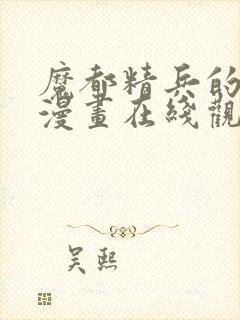 魔都精兵的
漫畫在綫觀
吴熙